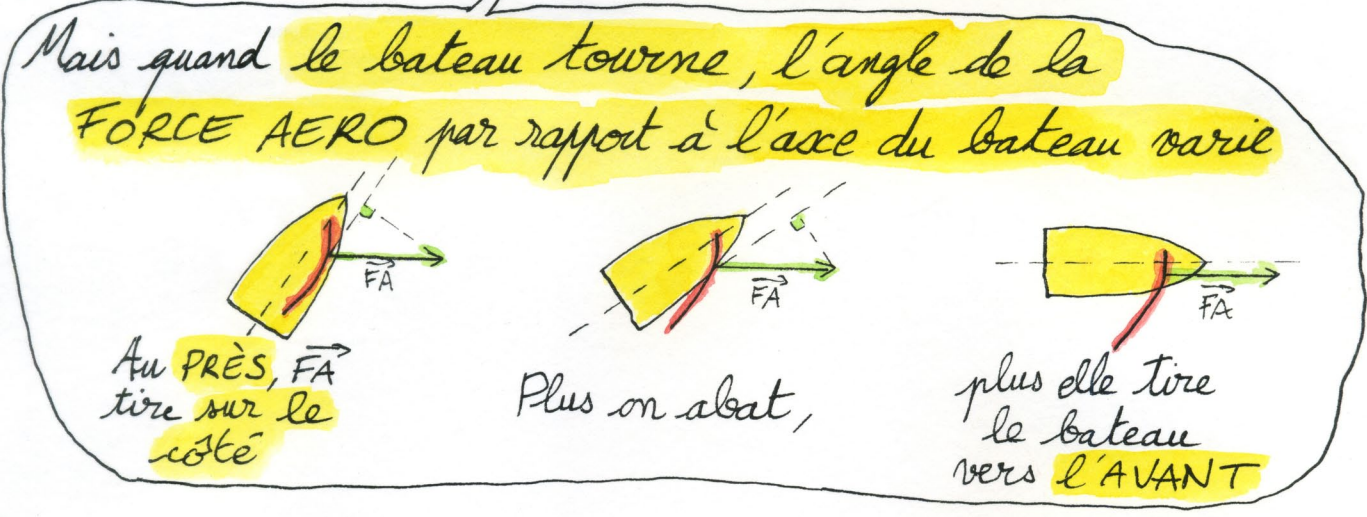 Mais quand le bateau tourne, l'angle de la
FORCE AERO par rapport à l'axe du bateau varie
FA
FA
FA
Au PRÈS, FA
tire sur le
côté
Plus on abat,
plus elle tire
le bateau
vers l'AVANT